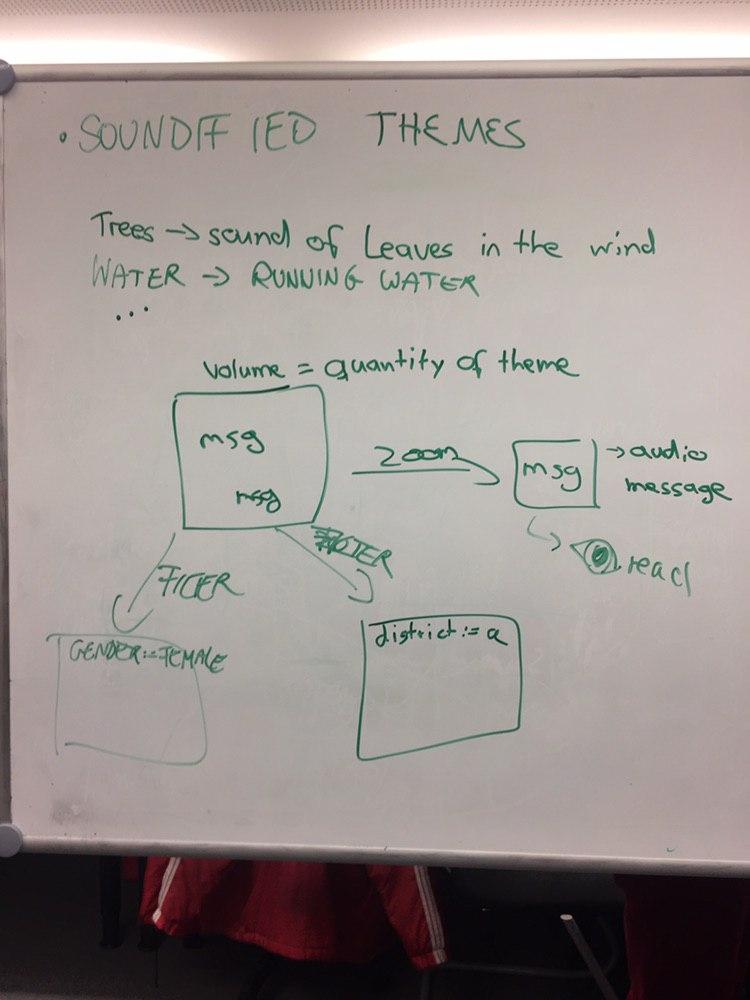 • SOUNDIFIED THEMES
Trees → sound of Leaves in the wind
WATER → RUNNING WATER
...
volume = quantity of theme
msg
msg
zoom
msg
→ audio
message
read
FILTER
FILTER
GENDER:=FEMALE
district := a